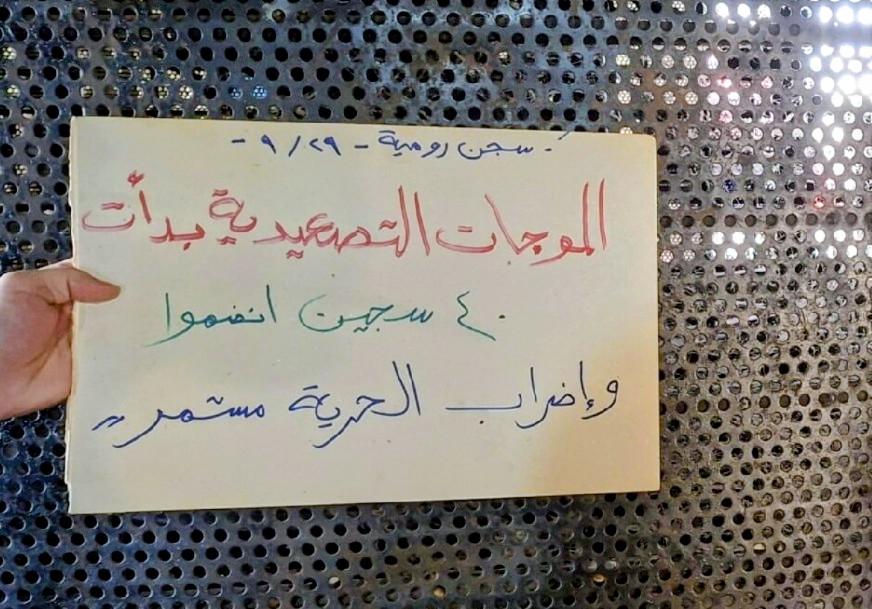 سجن رومية - ٢٩ / ٩ -
الموجات التصعيدية بدأت
٤٠ سجين انضموا
وإضراب الحرية مستمر ,,